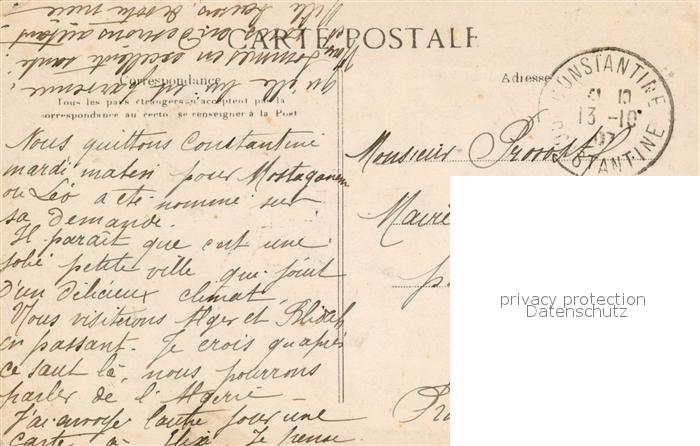 CARTE POSTALE
Correspondance
Tous les pays étrangers n'acceptent pas la
correspondance au recto se renseigner à la Post
Adresse
CONSTANTINE
13 - 10
CONSTANTINE
Nous quittons Constantine
mardi matin pour Mostaganem
ou Léo a été nommé sur
sa demande.
Il paraît que c'est une
jolie petite ville qui jouit
d'un délicieux climat.
Nous visiterons Alger et Blidah
en passant. Je crois qu'après
ce saut là, nous pourrons
parler de l'Algérie
J'ai envoyé l'autre jour une
carte à Je pense
qu'elle lui est parvenue.
Nous sommes en excellente santé
Monsieur Provost
Maire
privacy protection
Datenschutz